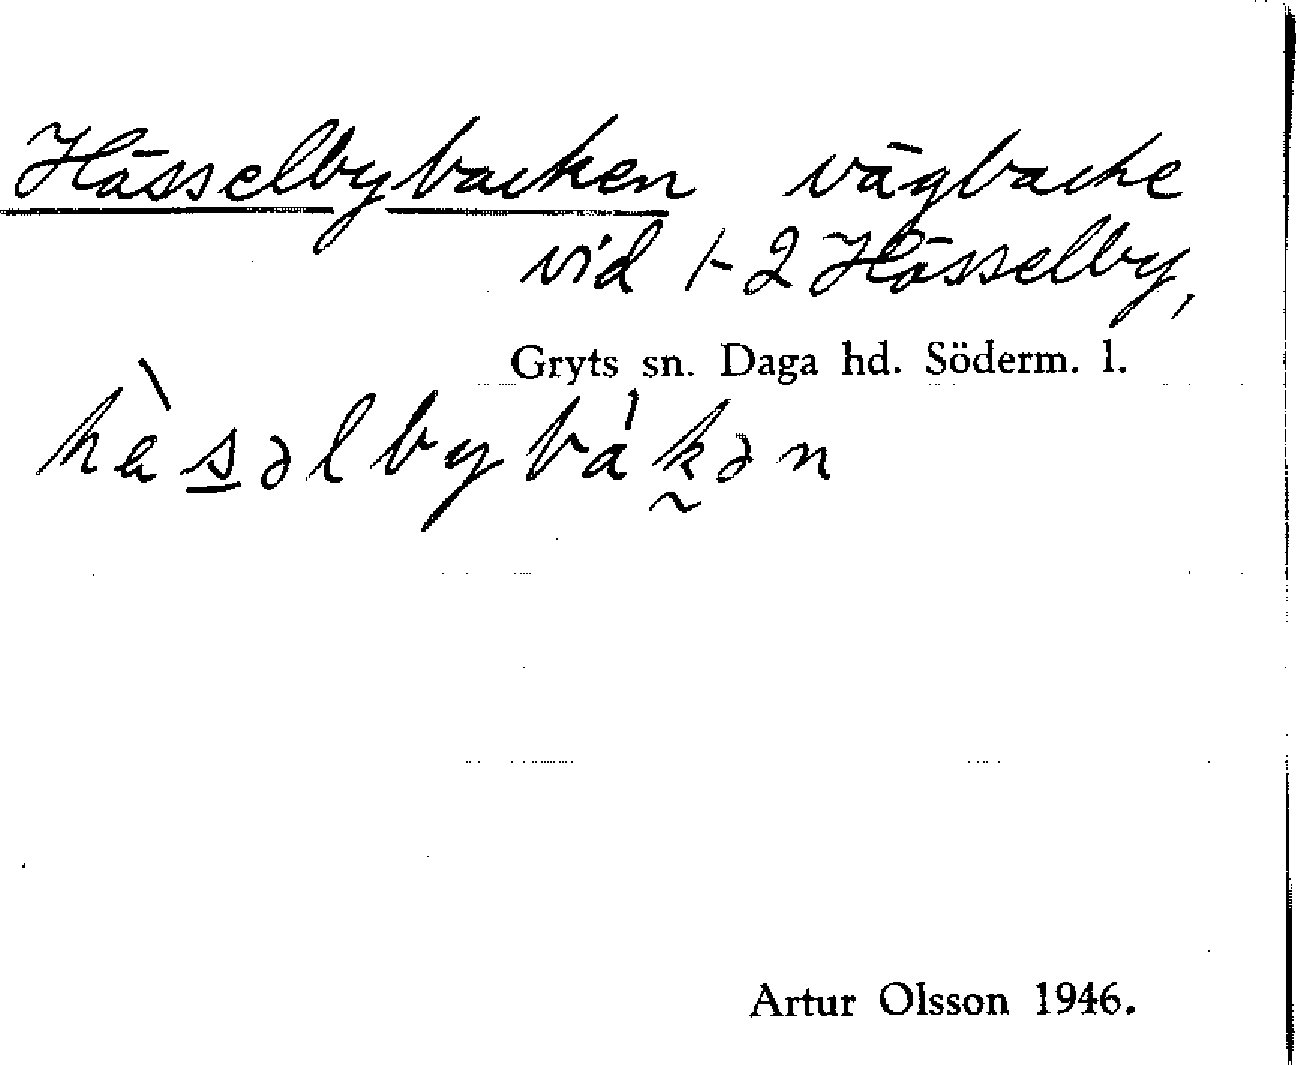 Hässelbybacken vägbacke
vid 1-2 Hässelby,
Gryts sn. Daga hd. Söderm. l.
hèsəlbybákən
Artur Olsson 1946.